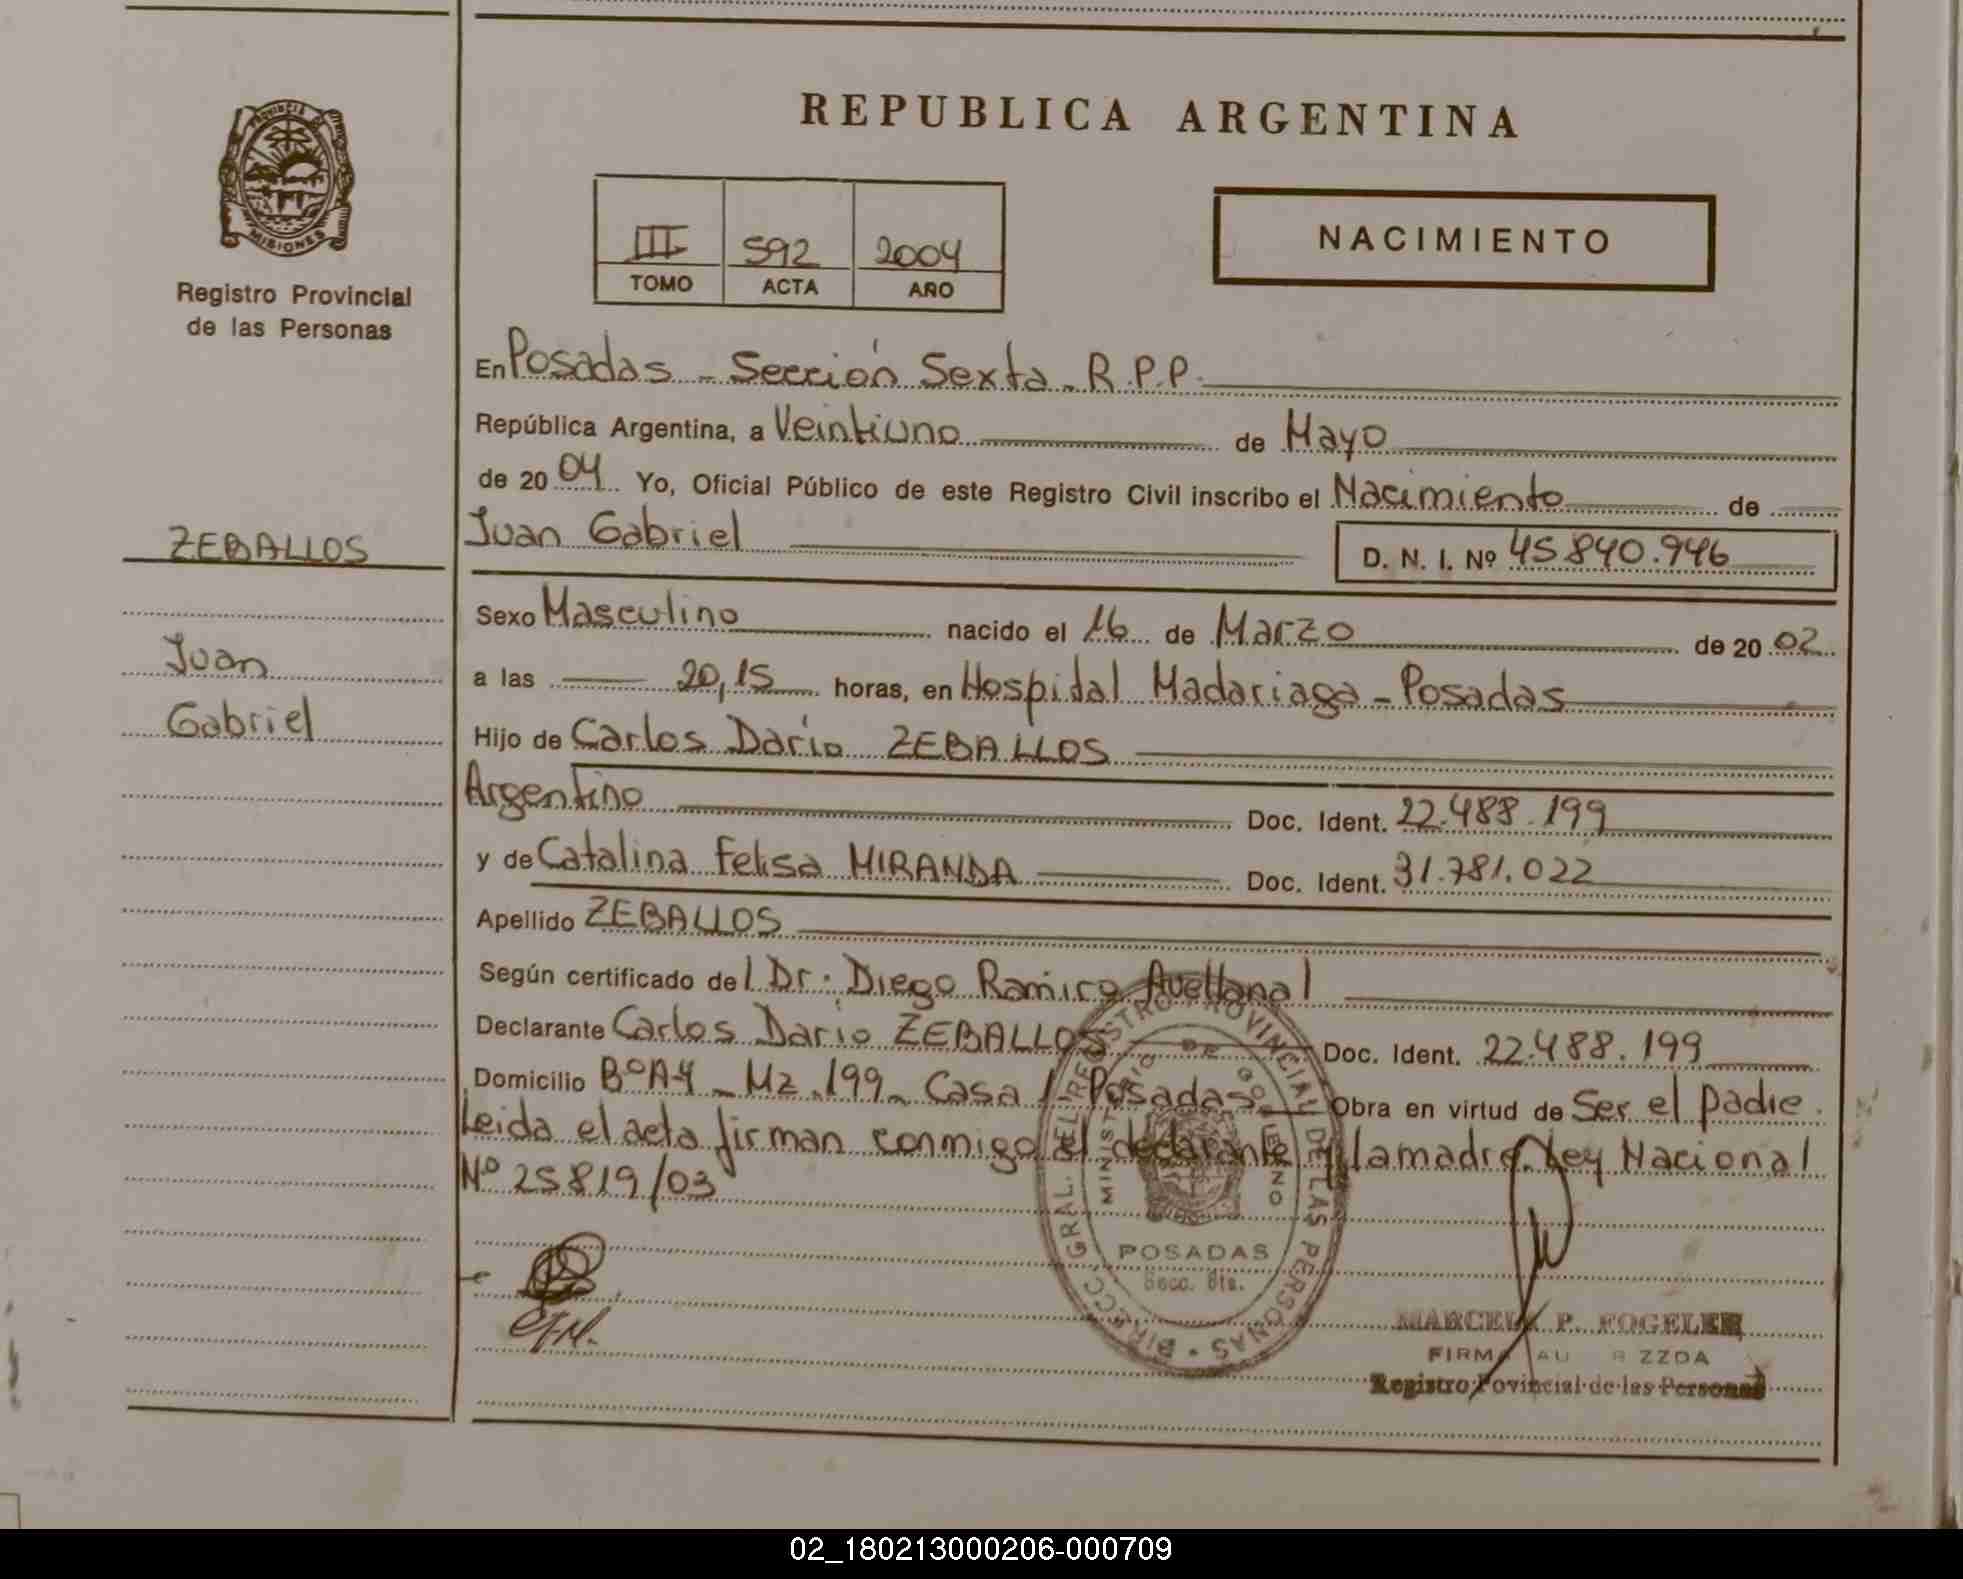 PROVINCIA DE
MISIONES
Registro Provincial
de las Personas
ZEBALLOS
Juan
Gabriel
REPUBLICA ARGENTINA
III 592 2004
TOMO ACTA AÑO
NACIMIENTO
En Posadas - Sección Sexta - R.P.P.
República Argentina, a Veintiuno de Mayo
de 2004 Yo, Oficial Público de este Registro Civil inscribo el Nacimiento de
Juan Gabriel D. N. I. Nº 45840.946
Sexo Masculino nacido el 16 de Marzo de 2002
a las 20,15 horas, en Hospidal Madariaga - Posadas
Hijo de Carlos Dario ZEBALLOS
Argentino Doc. Ident. 22.488.199
y de Catalina Felisa MIRANDA Doc. Ident. 31.781.022
Apellido ZEBALLOS
Según certificado del Dr. Diego Ramiro Avellanal
Declarante Carlos Dario ZEBALLOS Doc. Ident. 22.488.199
Domicilio BºA4 - Mz.199 - Casa 1 - Posadas Obra en virtud de Ser el padre.
Leida el acta firman conmigo el declarante y la madre. Ley Nacional
Nº 25819/03
DIRECC. GRAL. DEL REGISTRO PROVINCIAL DE LAS PERSONAS
MINISTERIO DE GOBIERNO
POSADAS
Secc. 6ta.
P. FOGELER
FIRMA AU ZZDA
Registro Provincial de las Personas
02_180213000206-000709